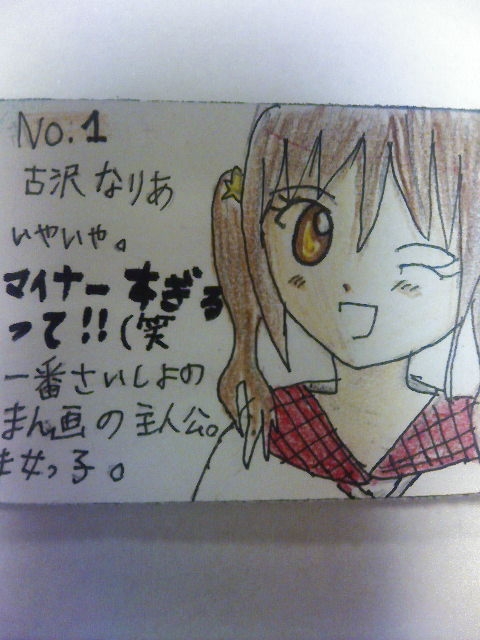 No.1
古沢 なりあ
いやいや。
マイナーすぎる
って!!(笑
一番さいしょの
まん画の主人公。
女っ子。